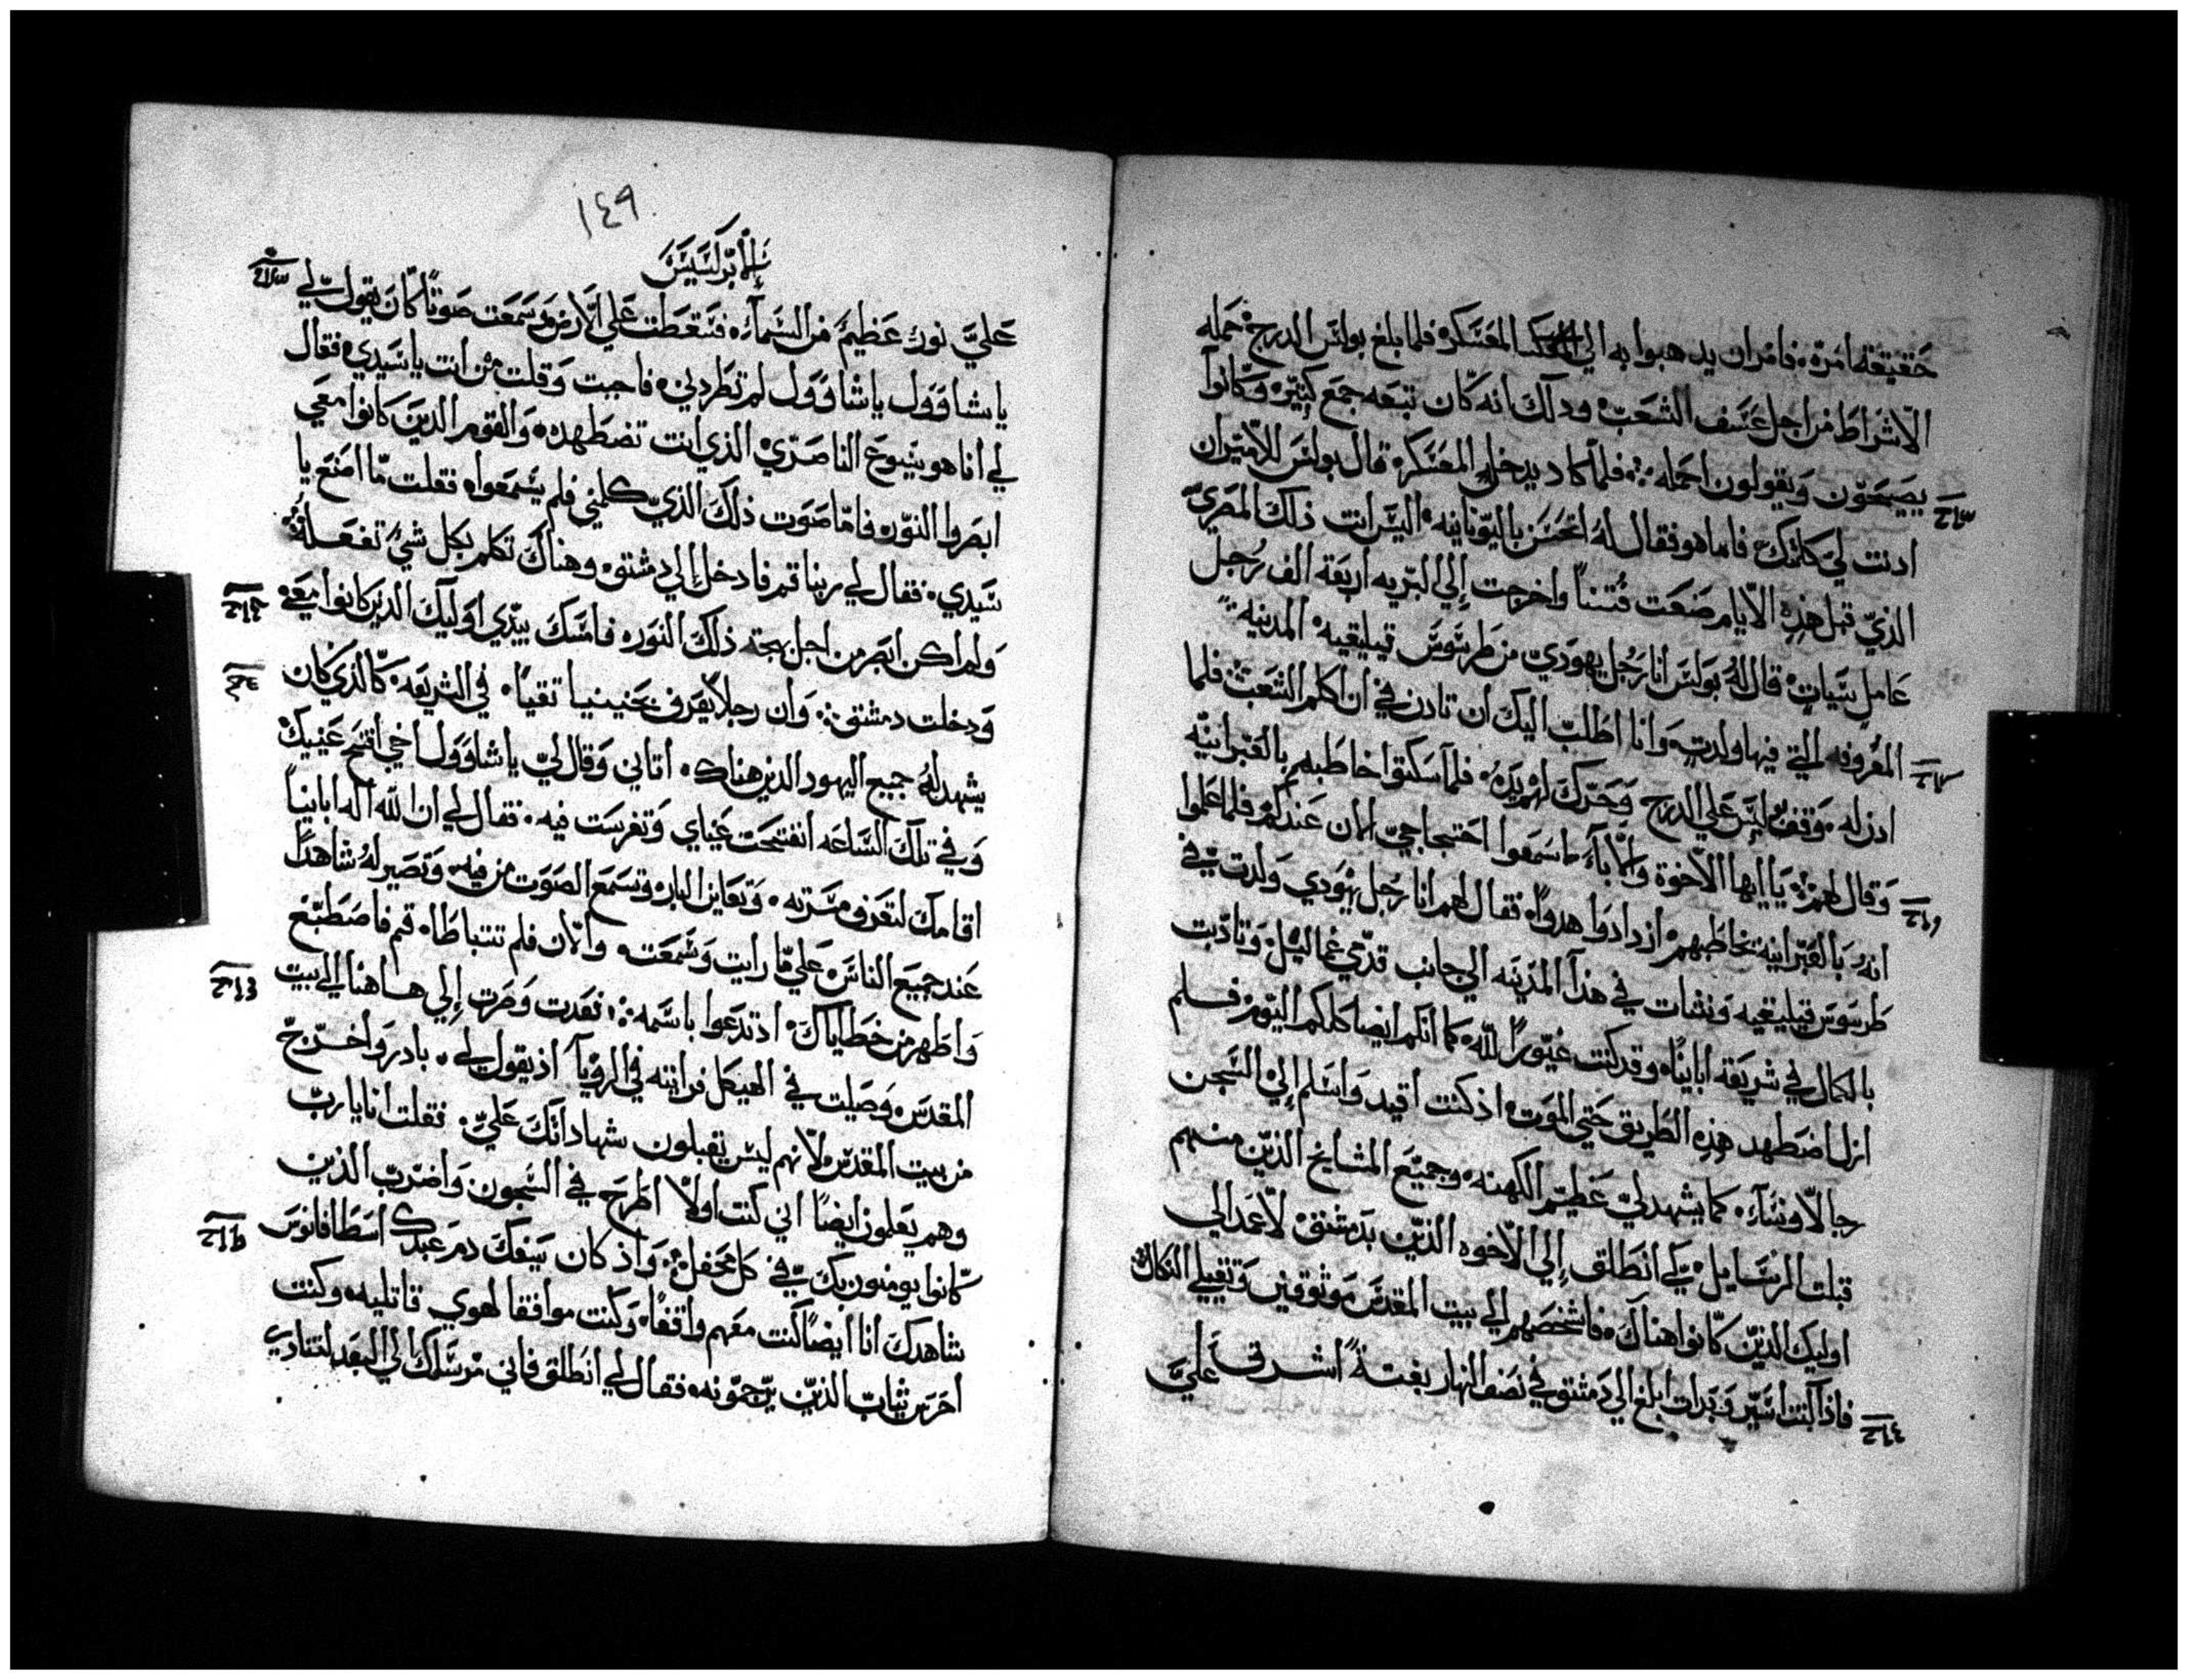 حقيقة امره فامر ان يدهبوا به الي المعسكر فلما بلغ بولس الدرج حمله
الاشراط من اجل عسف الشعب ودلك انه كان تبعه جمع كبير وكانوا
يصيحون ويقولون احمله فلما كاد يدخله المعسكر قال بولس للامير ان
ادنت لي كلمتك فاما هو فقال له اتحسن باليونانيه اليس انت ذلك المصري
الذي قبل هذه الايام صنعت فتنا واخرجت إلي البريه اربعة الف رجل
عامل سيات قال له بولس انا رجل يهودي من طرسوس قيليقيه المدينه
المعروفه التي فيها ولدت وانا اطلب اليك ان تادن في ان اكلم الشعب فلما
ادن له وقف بولس علي الدرج وحرك لهم يده فلما سكتوا خاطبهم بالعبرانيه
وقال لهم يا ايها الاخوة والاباء اسمعوا احتجاجي الان عندكم فلما علموا
انه بالعبرانية يخاطبهم ازدادوا هدوا فقال لهم انا رجل يهودي ولدت في
طرسوس قيليقيه ونشات في هذا المدينه الي جانب قدمي غماليل وتادبت
بالكمال في شريعة ابايناه وقد كنت غيورا لله كما انكم ايضا كلكم اليوم فلم
ازل اضطهد هذه الطريق حتي الموت اذ كنت اقيد واسلم إلي السجن
رجالا ونساء كما يشهد لي عظيم الكهنه وجميع المشايخ الذين منهم
قبلت الرسايل كي انطلق إلي الاخوه الذين بدمشق لاعمد الي
اوليك الذين كانوا هناك فاشخصهم الي بيت المقدس موثوقين وتقبلي النكال
فاذا كنت اسير وبدات ابلغ الي دمشق في نصف النهار بغتة اشرق علي
١٤٩
الابركسيس
علي نور عظيم من السماء فسقطت علي الارض وسمعت صوتا كان يقول لي
يا شاوول يا شاوول لم تطردني فاجبت وقلت من انت يا سيدي فقال
لي انا هو يسوع الناصري الذي انت تضطهده والقوم الدين كانوا معي
ابصروا النور فاما صوت ذلك الذي كلمني فلم يسمعوا فقلت ما اصنع يا
سيدي فقال لي ربنا قم فادخل إلي دمشق وهناك تكلم بكل شي تفعله
ولم اكن ابصر من اجل بهجة ذلك النور فامسك بيدي اوليك الدين كانوا معي
ودخلت دمشق وان رجلا يعرف بحنينيا تقيا في الشريعه كالذي كان
يشهد له جميع اليهود الدين هناك اتاني وقال لي يا شاوول اخي افتح عينيك
وفي تلك الساعه انفتحت عيناي وتفرست فيه فقال لي ان الله اله اباينا
اقامك لتعرف مسرته وتعاين البار وتسمع الصوت من فيه وتصير له شاهدا
عند جميع الناس علي ما رايت وسمعت والان فلم تتباطاه قم فاصطبغ
واطهر من خطاياك اد تدعوا باسمه فعدت وصرت إلي هاهنا الي بيت
المقدس وصليت في الهيكل فرايته في الرويا اذ يقول لي بادر واخرج
من بيت المقدس لانهم ليس يقبلون شهاداتك علي فقلت انا يا رب
وهم يعلمون ايضا اني كنت اولا اطرح في السجون واضرب الذين
كانوا يومنون بك في كل محفل واذ كان يسفك دم عبدك اسطافانوس
شاهدك انا ايضا كنت معهم واقفا وكنت موافقا لهوي قاتليه وكنت
احرس ثياب الذين يرجمونه فقال لي انطلق فاني مرسلك الي البعد لتنادي